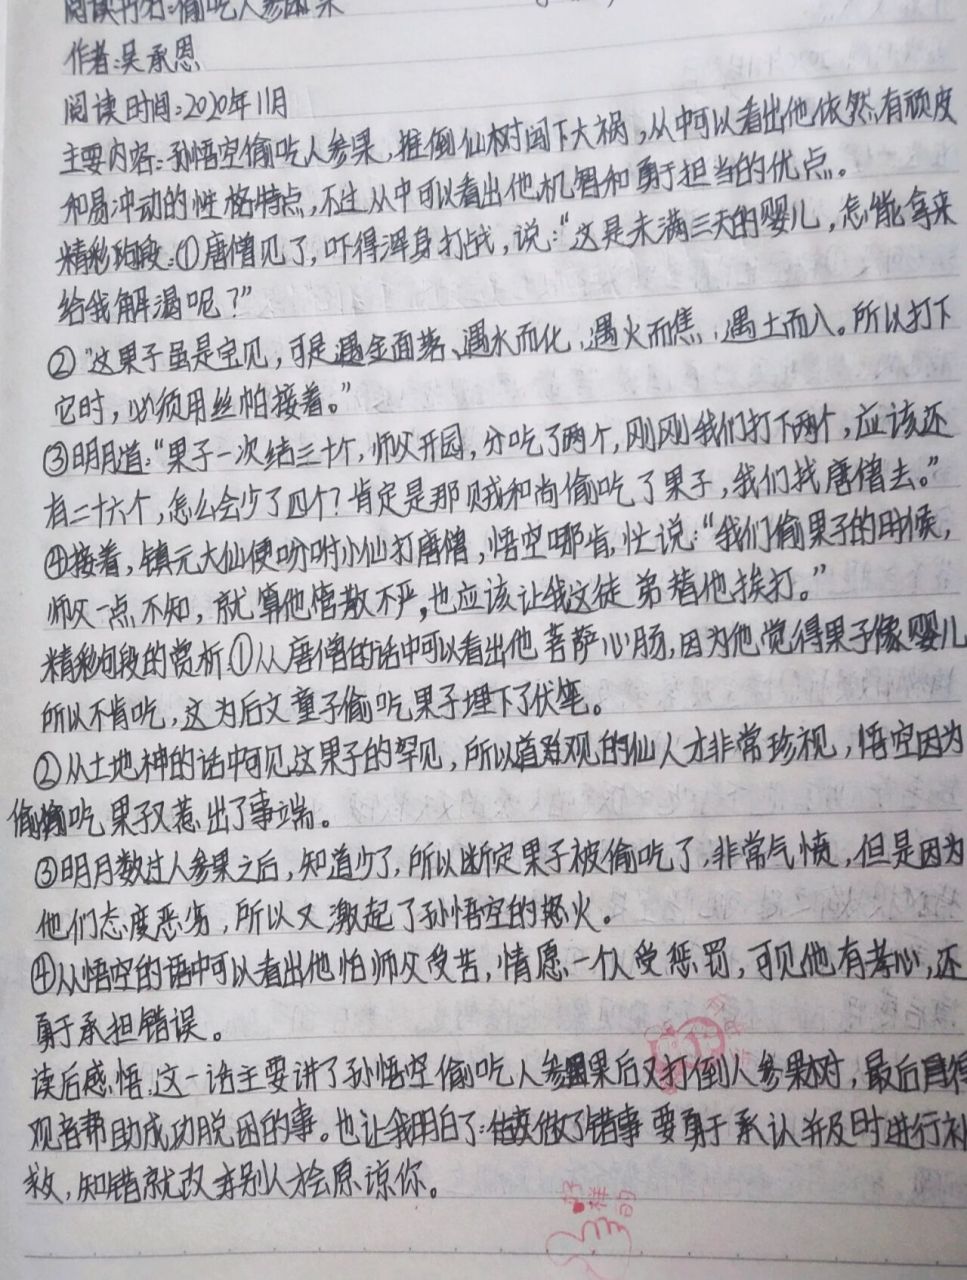 阅读书名:偷吃人参果
作者:吴承恩
阅读时间:2020年11月
主要内容:孙悟空偷吃人参果,推倒仙树闯下大祸,从中可以看出他依然有顽皮
和易冲动的性格特点,不过从中可以看出他机智和勇于担当的优点。
精彩句段:①唐僧见了,吓得浑身打战,说:“这是未满三天的婴儿,怎能拿来
给我解渴呢?”
②“这果子虽是宝贝,可是遇金而落、遇水而化,遇火而焦,遇土而入。所以打下
它时,必须用丝帕接着。”
③明月道:“果子一次结三十个,师父开园,分吃了两个,刚刚我们打下两个,应该还
有二十六个,怎么会少了四个?肯定是那贼和尚偷吃了果子,我们找唐僧去。”
④接着,镇元大仙便吩咐小仙打唐僧,悟空哪肯,忙说:“我们偷果子的时候,
师父一点不知,就算他管教不严,也应该让我这徒弟替他挨打。”
精彩句段的赏析:①从唐僧的话中可以看出他菩萨心肠,因为他觉得果子像婴儿
所以不肯吃,这为后文童子偷吃果子埋下了伏笔。
②从土地神的话中可见这果子的罕见,所以道观的仙人才非常珍视,悟空因为
偷吃果子又惹出了事端。
③明月数过人参果之后,知道少了,所以断定果子被偷吃了,非常气愤,但是因为
他们态度恶劣,所以又激起了孙悟空的怒火。
④从悟空的话中可以看出他怕师父受苦,情愿一个人受惩罚,可见他有孝心,还
勇于承担错误。
读后感悟:这一话主要讲了孙悟空偷吃人参果后又打倒人参果树,最后
观音帮助成功脱困的事。也让我明白了:做了错事要勇于承认并及时进行补
救,知错就改 别人才会原谅你。
好样的